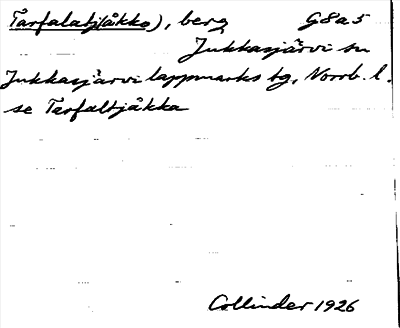 Tarfalatj(åkko), berg G8a5
Jukkasjärvi sn
Jukkasjärvi lappmarks tg, Norrb. l.
se Tarfaltjåkka
Collinder 1926